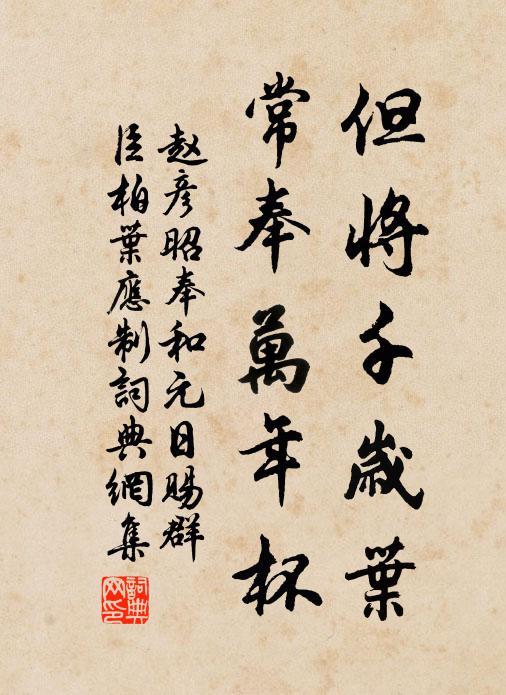 但將千歲葉
常奉萬年杯
赵彦昭奉和元日賜群
臣柏葉應制詞典網集
詞典
网印